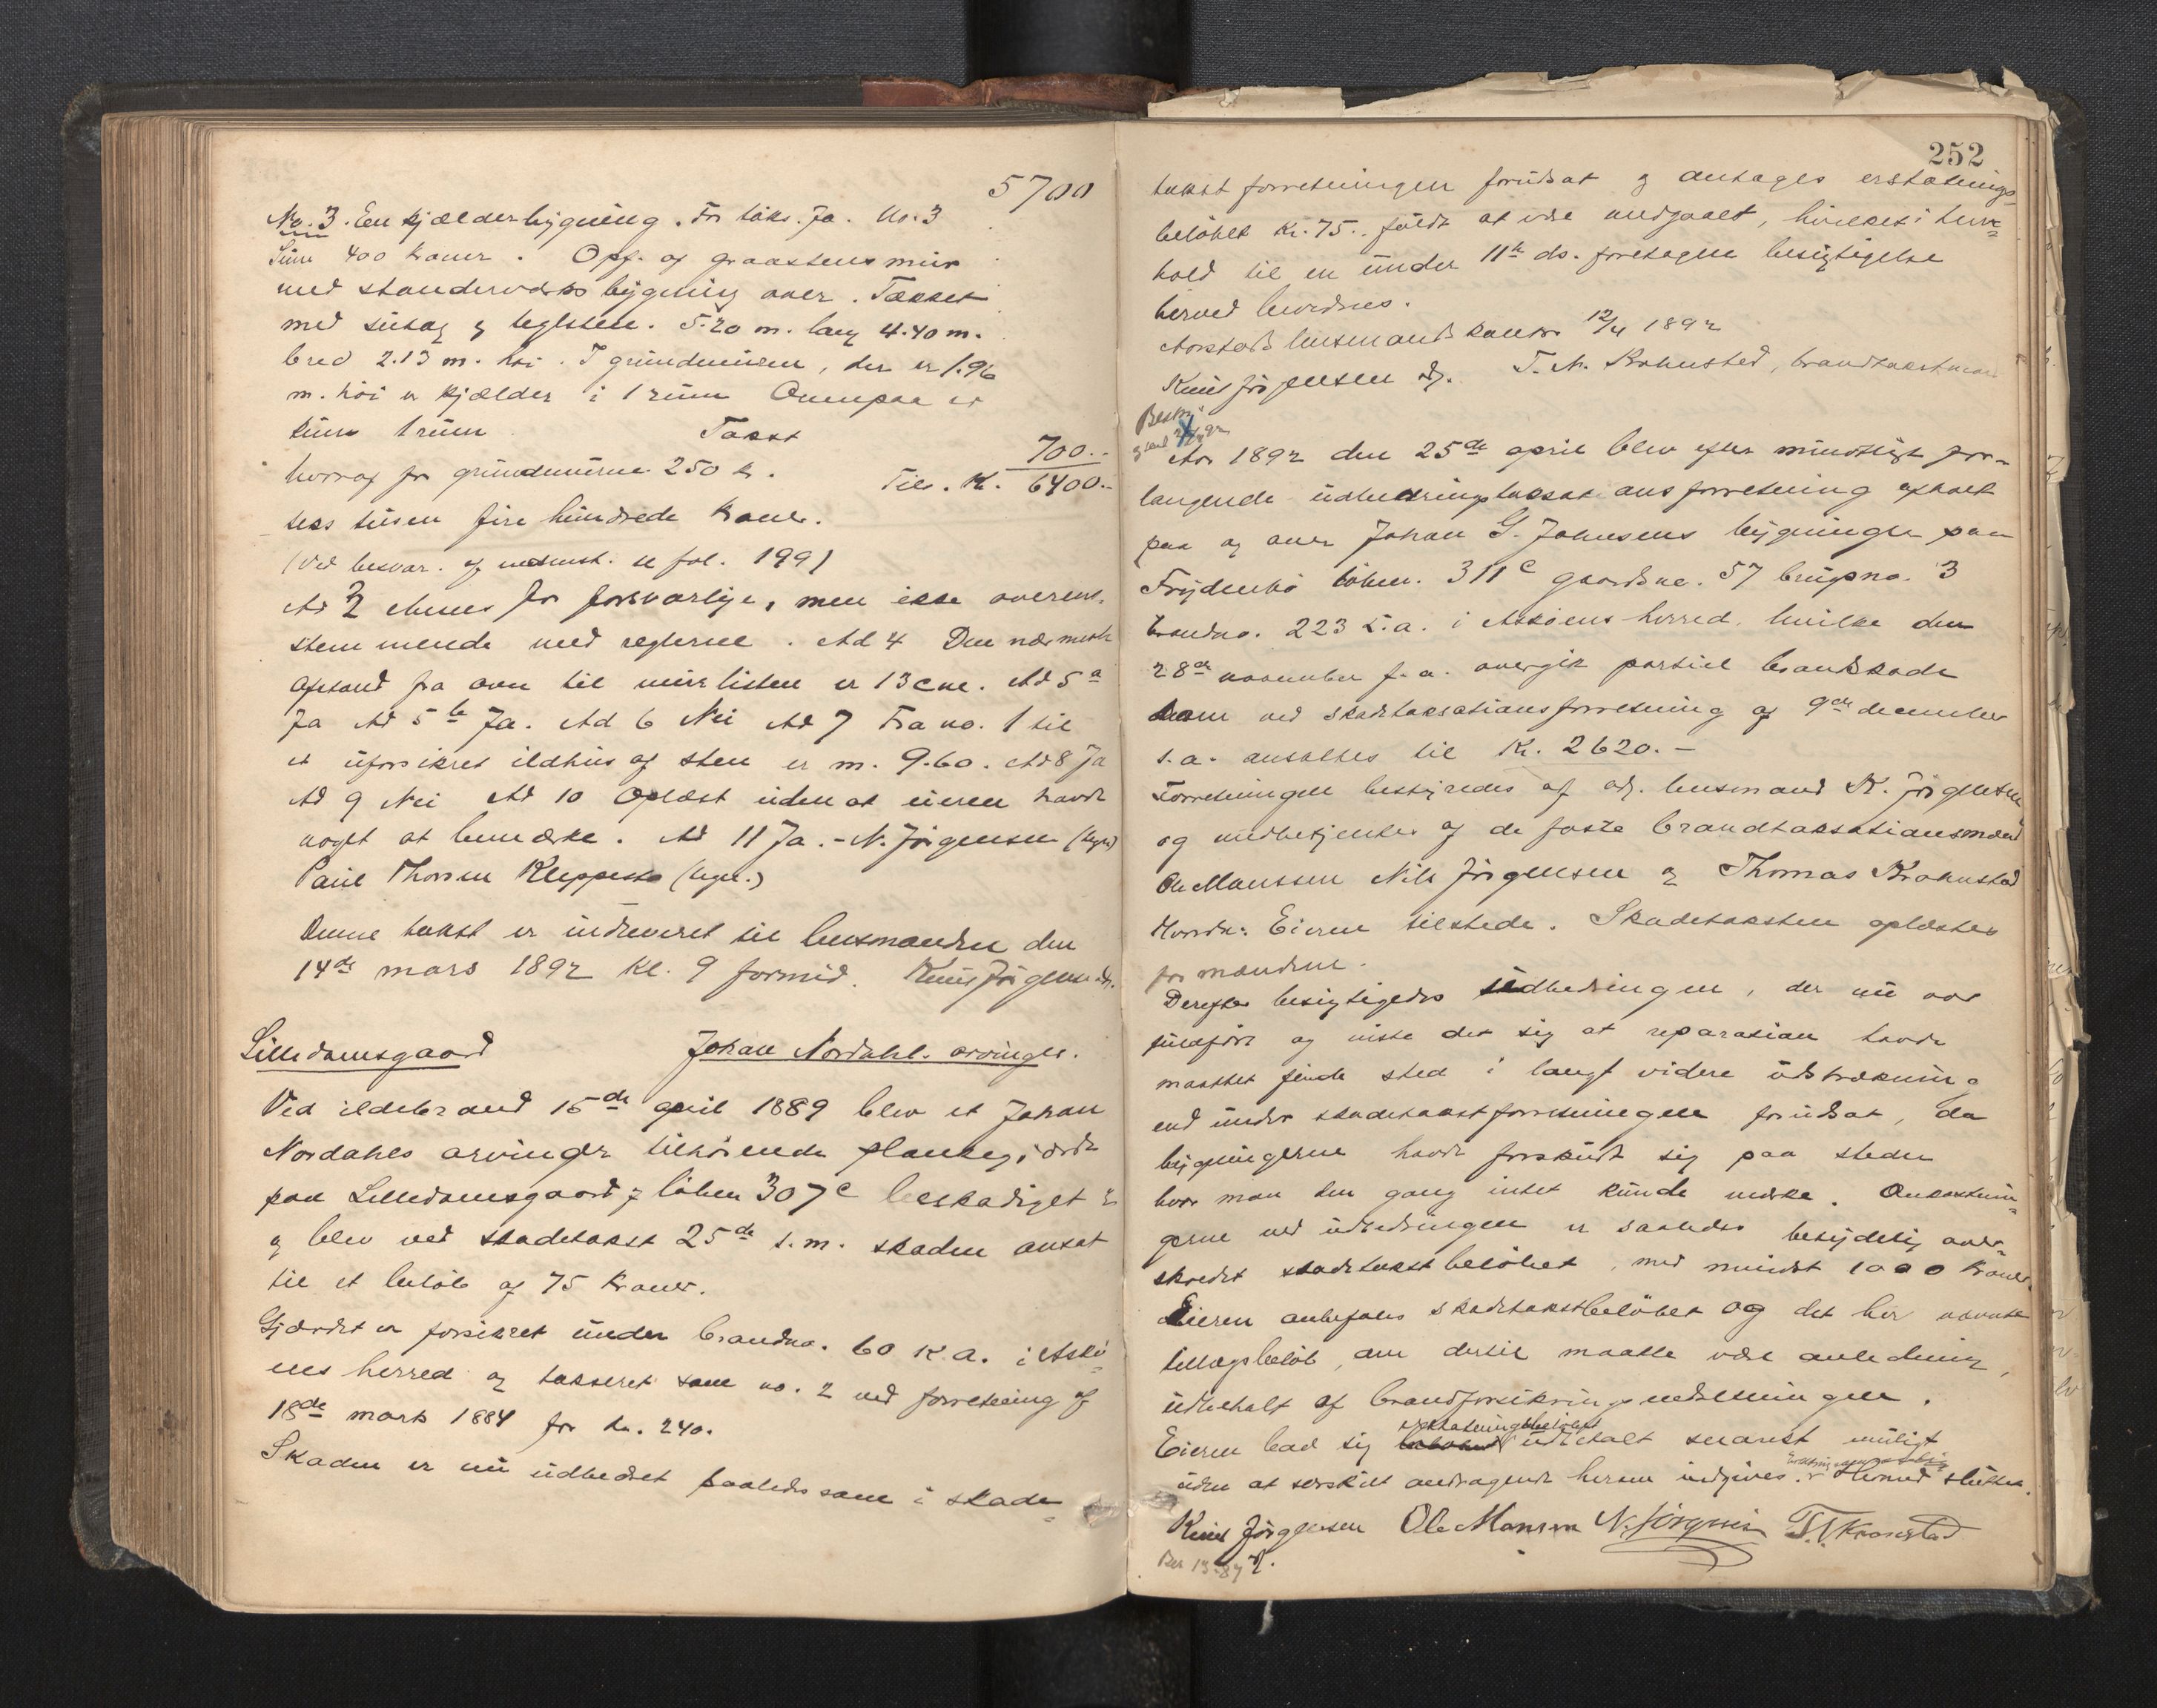 5700
No. 3. En kjælderbygning. Fr taks. Ja. No. 3
Sum 400 kroner. Opf. af graastensmur
med standerværks bygning over. Tækket
med sutag og teglsten. 5.20 m. lang 4.40 m.
bred 2.13 m. høi. I grundmuren, der er 1.96
m. høi er kjælder i 1 rum Ovenpaa er
1 rum Takst 700..
hvoraf for grundmurene 250 kr. Tils. Kr. 6400.-
seks tusen fire hundrede kroner.
(Ved besvar. af fol. 199)
Ad 2 Ansees for forsvarlige, men ikke overens-
stemmende med reglerne. Ad 4 Den nærmeste
afstand fra ovn til murlisten er 13 cm. Ad 5 a
Ja Ad 5 b Ja. Ad 6 Nei Ad 7 Fra no. 1 til
et uforsikret ildhus af sten er m. 9.60. Ad 8 Ja
Ad 9 Nei Ad 10 Oplæst uden at eieren havde
noget at bemærke. Ad 11 Ja. - N. Jørgensen (sign)
Paul Thorsen Kleppestø (sign.)
Denne takst er indleveret til lensmanden den
14de mars 1892 kl. 9 formid. Knut Jørgensen adj.
Lilledamsgaard Johan Nordahls arvinger.
Ved ildebrand 15de april 1889 blev et Johan
Nordahls arvinger tilhørende plankegjærde
paa Lilledamsgaard, løben 307 c beskadiget
og blev ved skadetakst 25de s. m. skaden ansat
til et beløb af 75 kroner.
Gjærdet er forsikret under brandno. 60 K. a. i Askø-
ens herred og takseret som no. 2 ved forretning af
18de marts 1884 for kr. 240.
Skaden er nu udbedret saaledes som i skade-
252
takst forretningen forudsat og antages erstatnings-
beløbet kr. 75.. fuldt at være medgaaet, hvilket i hen-
hold til en under 11te ds. foretagen besigtigelse
herved bevidnes.
Aarstads lensmandskontor 12/4 1892
Knut Jørgensen adj. T. N. Krohnsted, brandtakstmand
Aar 1892 den 25de april blev efter mundtligt for-
langende udbedringstaksationsforretning afholdt
paa og over Johan G. Johnsens bygninger paa
Frydenbø løben. 311 c gaardsno. 57 brugsno. 3
brandno. 223 L. a. i Askøens herred, hvilke den
28de november f. a. overgik partiel brandskade
som ved skadetaksationsforretning af 9de december
s. a. ansattes til Kr. 2620.-
Forretningen bestyredes af adj. lensmand K. Jørgensen
og medbetjentes af de faste brandtaksationsmænd
Ole Monssen Nils Jørgensen og Thomas Krohnstad
Hvorda: Eieren tilstede. Skadetaksten oplæstes
for mændene.
Derefter besigtigedes udbedringen, der nu var
fuldført og viste det sig at reparation havde
maattet finde sted i langt videre udstrækning
end under skadetakstforretningen forudsat, da
bygningerne havde forskudt sig paa steder
hvor man den gang intet kunde mærke. Omkostnin-
gerne ved udbedringen er saaledes betydelig over-
skredet skadetakstbeløbet, med mindst 1000 kroner.
Eieren anbefales skadetakstbeløbet og det her nævnte
tillægsbeløb, om dertil maatte være anledning,
udbetalt af brandforsikringsindretningen.
Eieren bad sig erstatningsbeløbet udbetalt snarest muligt
uden at særskilt andragende herom indgives. Hermed sluttet.
Knut Jørgensen Ole Monsen N. Jørgensen T. N. Kronstad